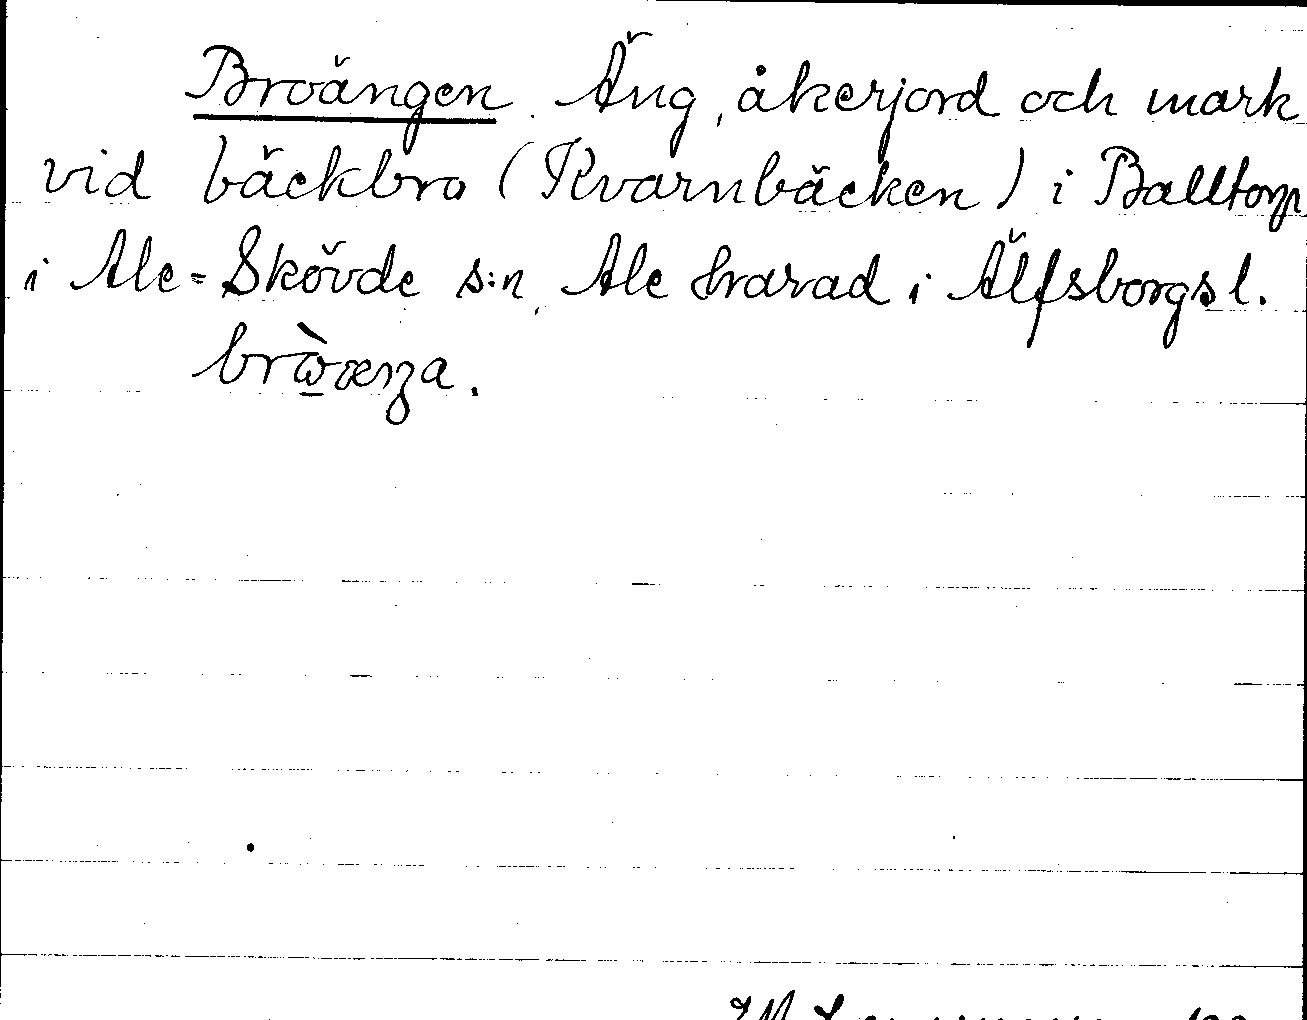 Broängen. Äng, åkerjord och mark
vid bäckbro (Kvarnbäcken) i Balltorp
i Ale=Skövde s:n, Ale härad i Älfsborgs l.